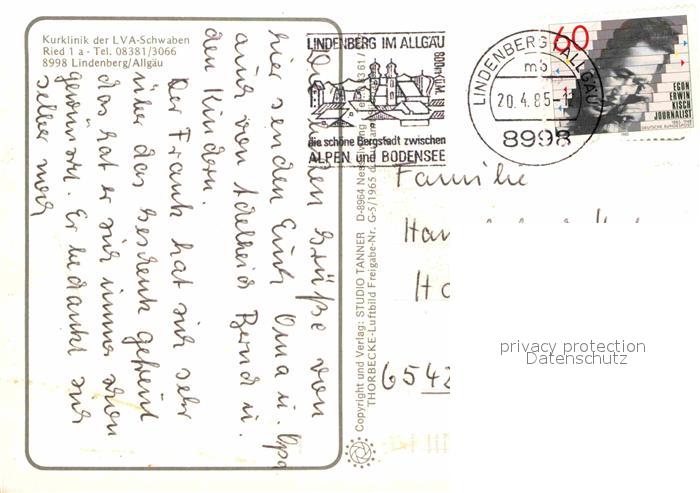 Kurklinik der LVA-Schwaben
Ried 1 a - Tel. 08381/3066
8998 Lindenberg/Allgäu
Grüße von
hier senden Euch Oma u. Opa
auch von Adelheid Bernd u.
den Kindern.
Der Frank hat sich sehr
über das Geschenk gefreut
das hat er sich immer schon
gewünscht. Er bedankt sich
selber noch
Copyright und Verlag: STUDIO TANNER D-8964 Nes
THORBECKE-Luftbild Freigabe-Nr. G-5/1965 d.
LINDENBERG IM ALLGÄU
800 m ü.M.
die schöne Bergstadt zwischen
ALPEN und BODENSEE
LINDENBERG, ALLGÄU
mb
20.4.85
8998
60
EGON
ERWIN
KISCH
JOURNALIST
1885-1948
DEUTSCHE BUNDESPOST
Familie
Ha
Ha
6542
privacy protection
Datenschutz